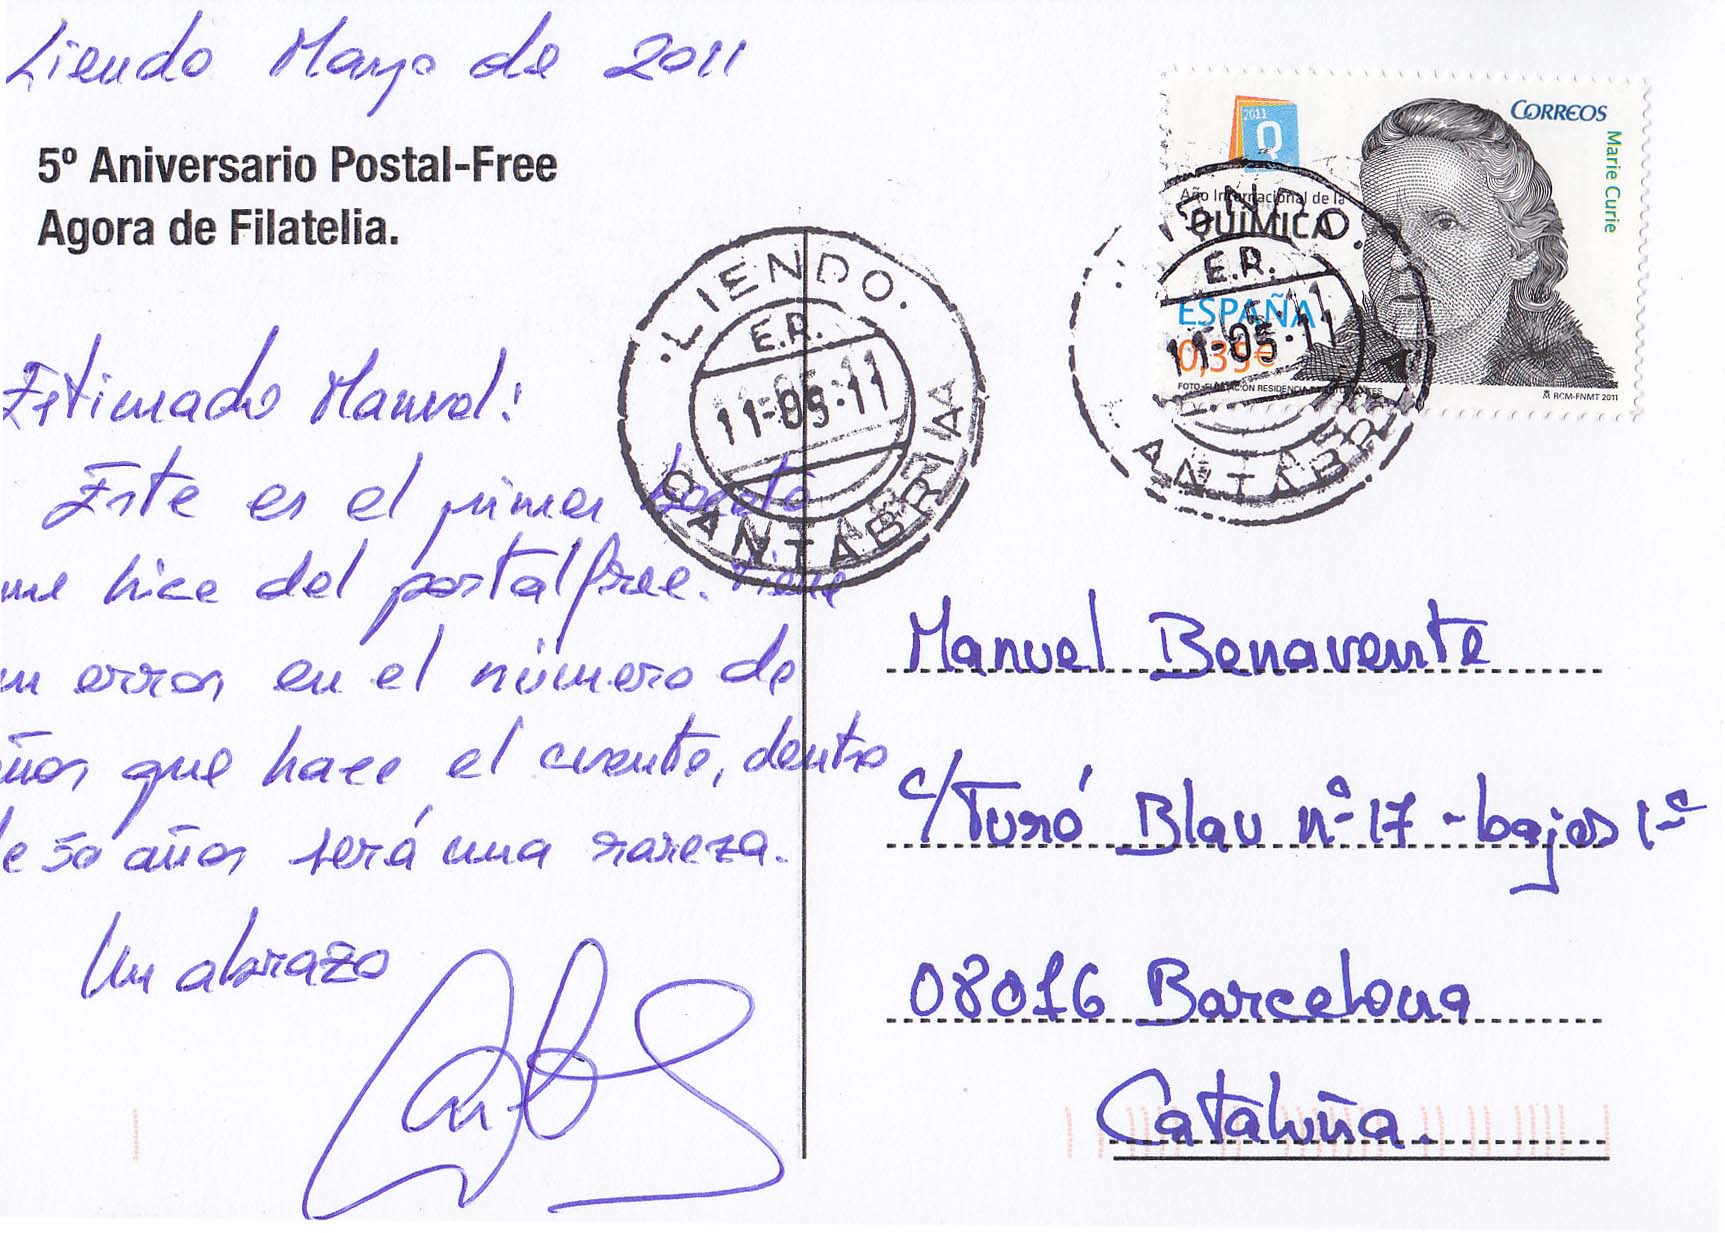 Liendo Mayo de 2011
5º Aniversario Postal-Free
Agora de Filatelia.
Estimado Manuel:
Este es el primer boceto
que hice del postalfree. Tiene
un error en el número de
años que hace el evento, dentro
de 50 años será una rareza.
Un abrazo
·LIENDO·
E.R.
11-05-11
CANTABRIA
CORREOS
Marie Curie
2011
Q
Año Internacional de la
QUÍMICA
ESPAÑA
0,35€
FOTO: FUNDACIÓN RESIDENCIA DE ESTUDIANTES
RCM-FNMT 2011
ENDO.
E.R.
11-05-11
ANTABR
Manuel Benavente
c/Turó Blau nº 17 - bajos 1º
08016 Barcelona
Cataluña.